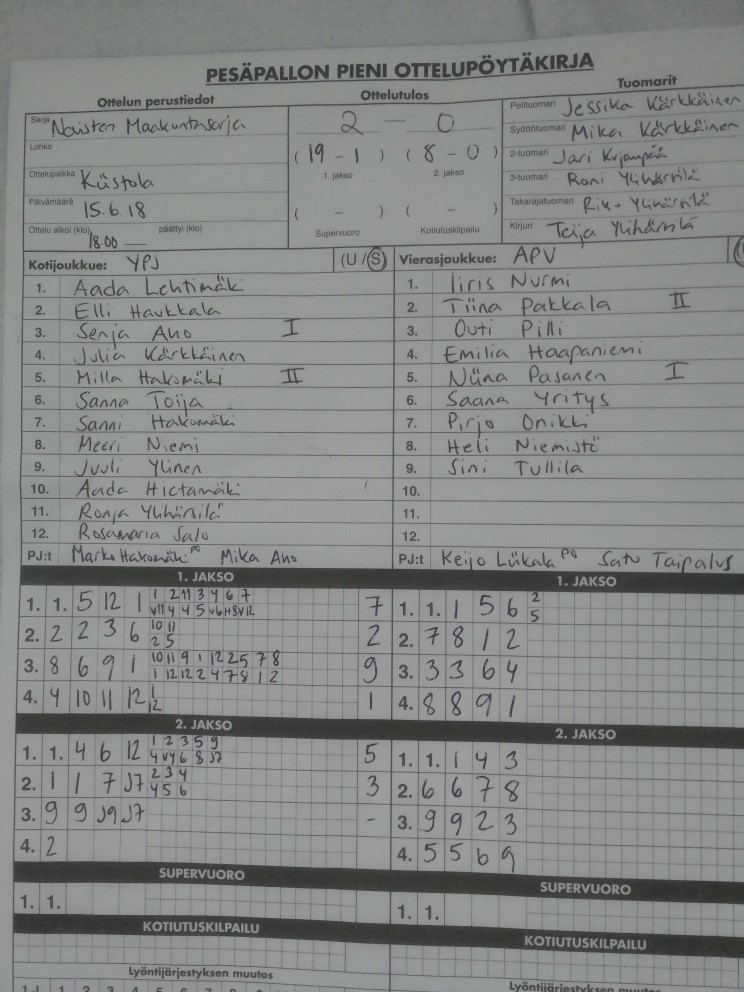 PESÄPALLON PIENI OTTELUPÖYTÄKIRJA
Ottelun perustiedot
Ottelutulos
Tuomarit
Sarja Naisten Maakuntasarja
Lohko
Ottelupaikka Küstola
Päivämäärä 15.6.18
Ottelu alkoi (klo) 18.00 päättyi (klo)
2 – 0
( 19 - 1 ) ( 8 - 0 )
1. jakso 2. jakso
( - ) ( - )
Supervuoro Kotiutuskilpailu
Pelituomari Jessika Kärkkäinen
Syöttötuomari Mika Kärkkäinen
2-tuomari Jari
3-tuomari Roni Ylihärsilä
Takarajatuomari Ylihärsilä
Kirjuri Teija Ylihärsilä
Kotijoukkue: YPJ (U / S)
1. Aada Lehtimäki
2. Elli Haukkala
3. Senja Aho I
4. Julia Kärkkäinen
5. Milla Hakomäki II
6. Sanna Toija
7. Sanni Hakomäki
8. Meeri Niemi
9. Juuli Ylinen
10. Aada Hietamäki
11. Ronja Ylihärsilä
12. Rosamaria Salo
PJ:t Marko Hakomäki PO Mika Aho
Vierasjoukkue: APV
1. Iiris Nurmi
2. Tiina Pakkala II
3. Outi Pilli
4. Emilia Haapaniemi
5. Niina Pasanen I
6. Saana Yritys
7. Pirjo Onikki
8. Heli Niemistö
9. Sini Tullila
10.
11.
12.
PJ:t Keijo Liikala PO Satu Taipalus
1. JAKSO
1. 1. 5 12 1 1 2 11 3 4 6 7 7
2. 2 2 3 6 10 11 2
2 5
3. 8 6 9 1 10 11 9 1 12 2 5 7 8 9
1 12 12 2 4 7 8 1 2
4. 4 10 11 12 1 1
12
1. JAKSO
1. 1. 1 5 6 2
5
2. 7 8 1 2
3. 3 3 6 4
4. 8 8 9 1
2. JAKSO
1. 1. 4 6 12 1 2 3 5 9 5
4 v4 6 8 J7
2. 1 1 7 J7 2 3 4 3
4 5 6
3. 9 9 J9 J7 -
4. 2
2. JAKSO
1. 1. 1 4 3
2. 6 6 7 8
3. 9 9 2 3
4. 5 5 6 9
SUPERVUORO
1. 1.
SUPERVUORO
1. 1.
KOTIUTUSKILPAILU
KOTIUTUSKILPAILU
Lyöntijärjestyksen muutos
Lyöntijärjestyksen muutos